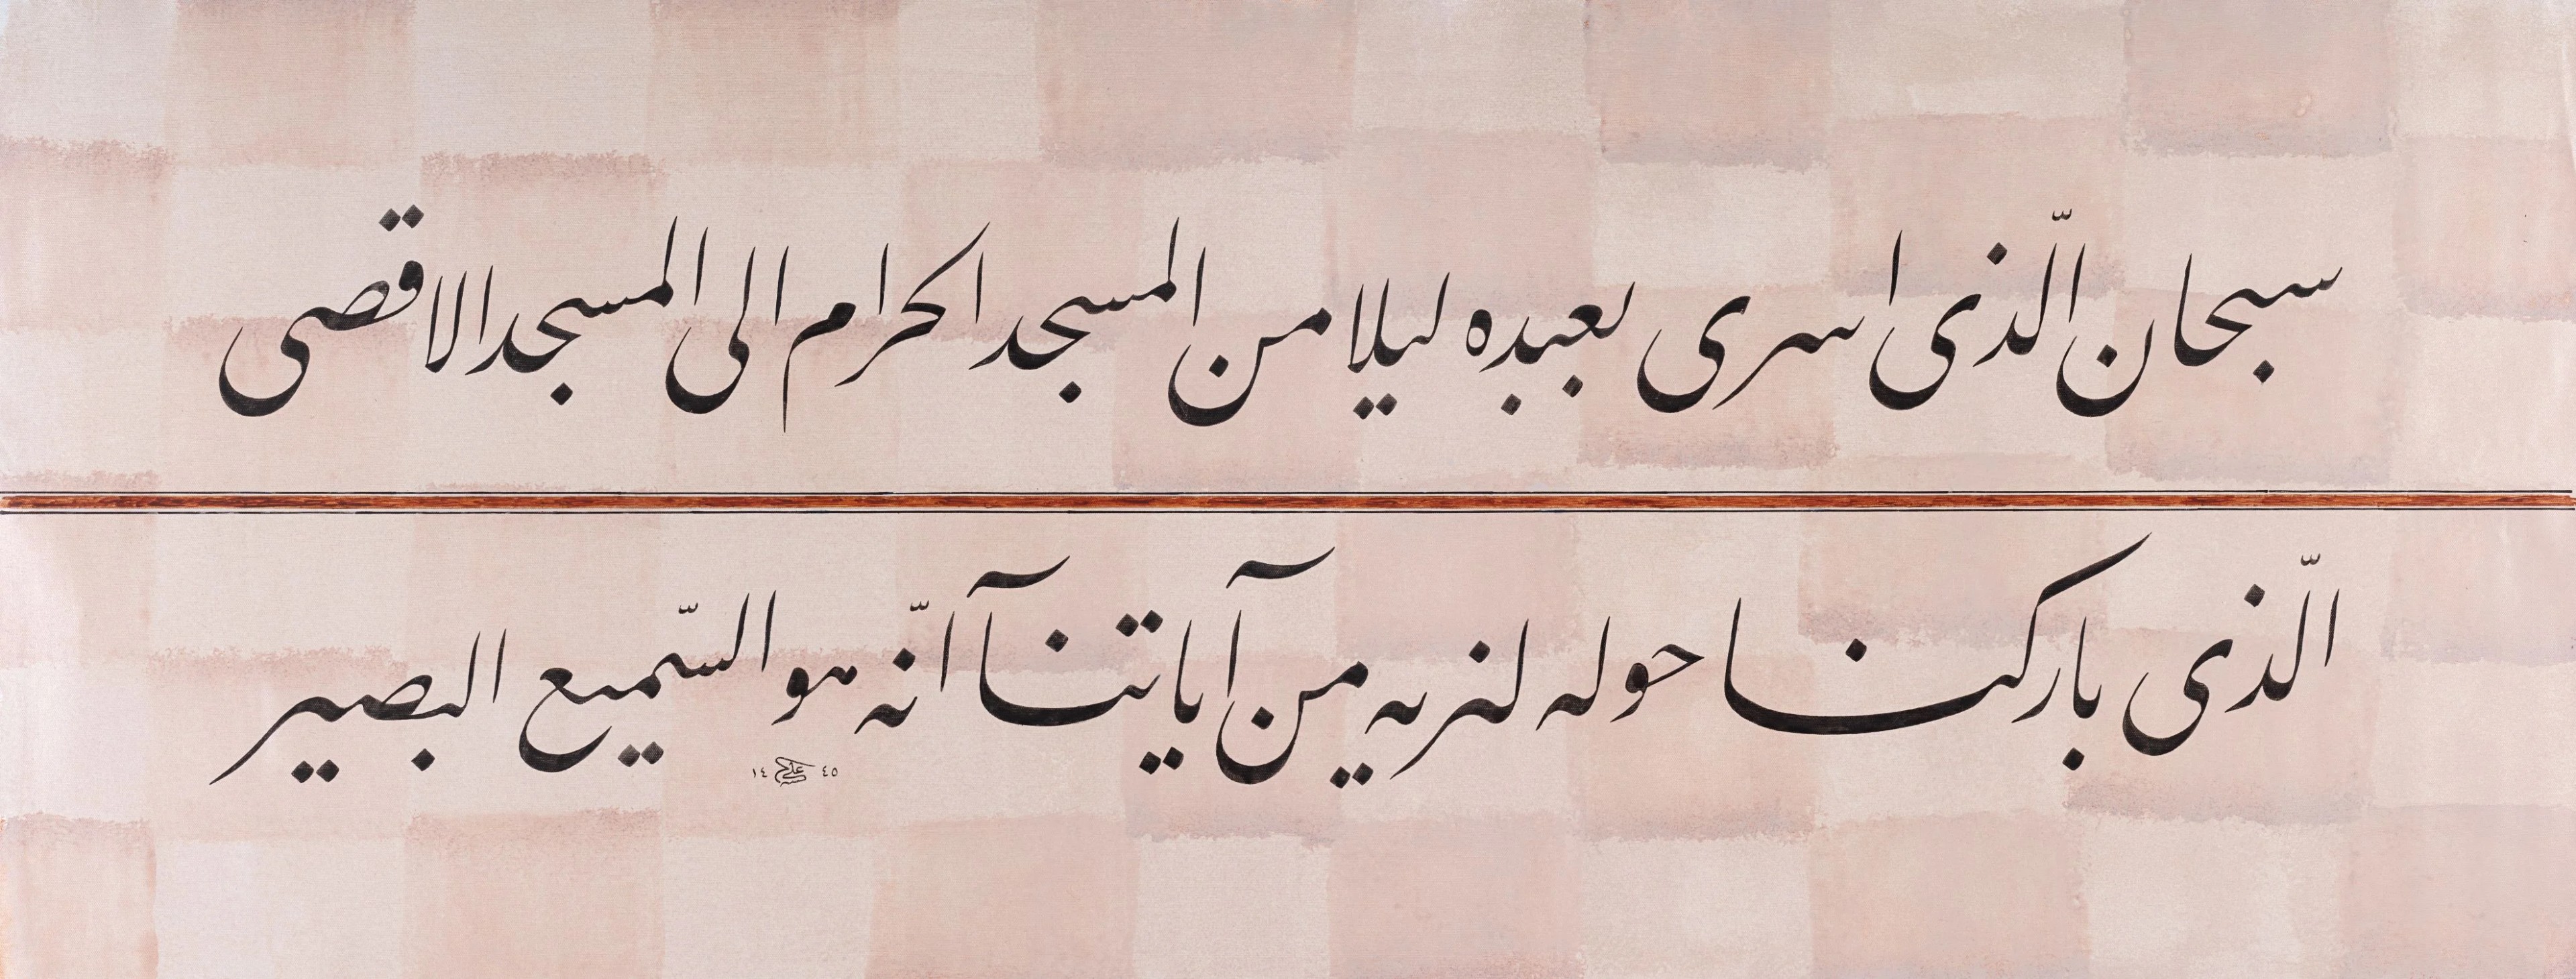 سبحان الّذى اسرى بعبده ليلا من المسجد الحرام الى المسجد الاقصى
الّذى باركنا حوله لنريه من آياتنآ انّه هو السّميع البصير
١٤ ٤٥